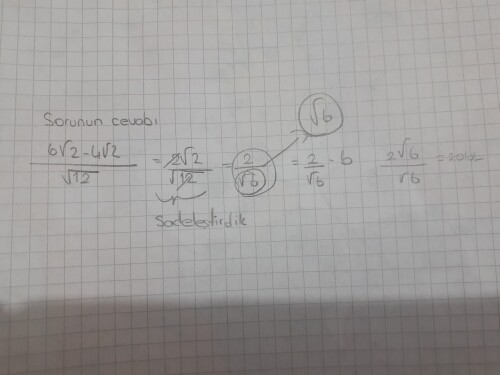 √6
Sorunun cevabı
6√2-4√2 / √12 = 2√2 / √12 = 2 / √6 = 2 / √6 · 6 2√6 / √6
Sadeleştirdik